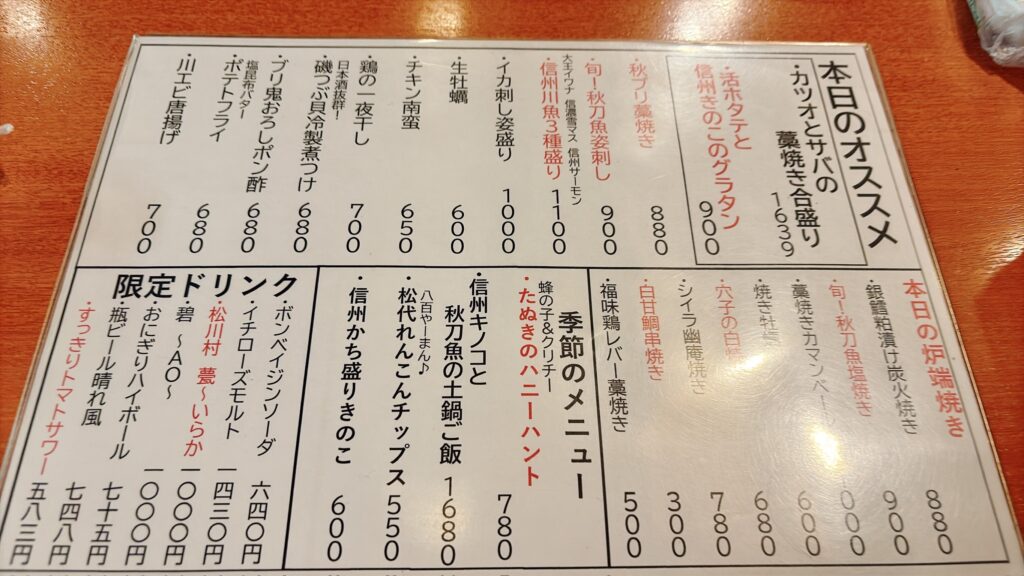 本日のオススメ
・カツオとサバの
藁焼き合盛り
1639
・活ホタテと
信州きのこのグラタン
900
・秋ブリ藁焼き
880
・旬!秋刀魚姿刺し
900
大王イワナ 信濃雪マス 信州サーモン
・信州川魚3種盛り
1100
・イカ刺し姿盛り
1000
・生牡蠣
600
・チキン南蛮
650
・鶏の一夜干し
700
日本酒抜群!
・磯つぶ貝冷製煮つけ
680
・ブリ鬼おろしポン酢
680
塩昆布バター
・ポテトフライ
680
・川エビ唐揚げ
700
本日の炉端焼き
・銀鱈粕漬け炭火焼き
880
・旬!秋刀魚塩焼き
900
・藁焼きカマンベール
00
・焼き牡
600
・穴子の白
680
・シイラ幽庵焼き
780
・白甘鯛串焼き
300
・福味鶏レバー藁焼き
500
季節のメニュー
蜂の子&クリチー
・たぬきのハニーハント
780
・信州キノコと
秋刀魚の土鍋ご飯
1680
八百やーまん♪
・松代れんこんチップス
550
・信州かち盛りきのこ
600
限定ドリンク
・ボンベイジンソーダ
六四〇円
・イチローズモルト
一四三〇円
・松川村 甍〜いらか
一〇〇〇円
・碧 〜AO〜
一〇〇〇円
・おにぎりハイボール
七十五円
・瓶ビール晴れ風
七四八円
・すっきりトマトサワー
五八三円